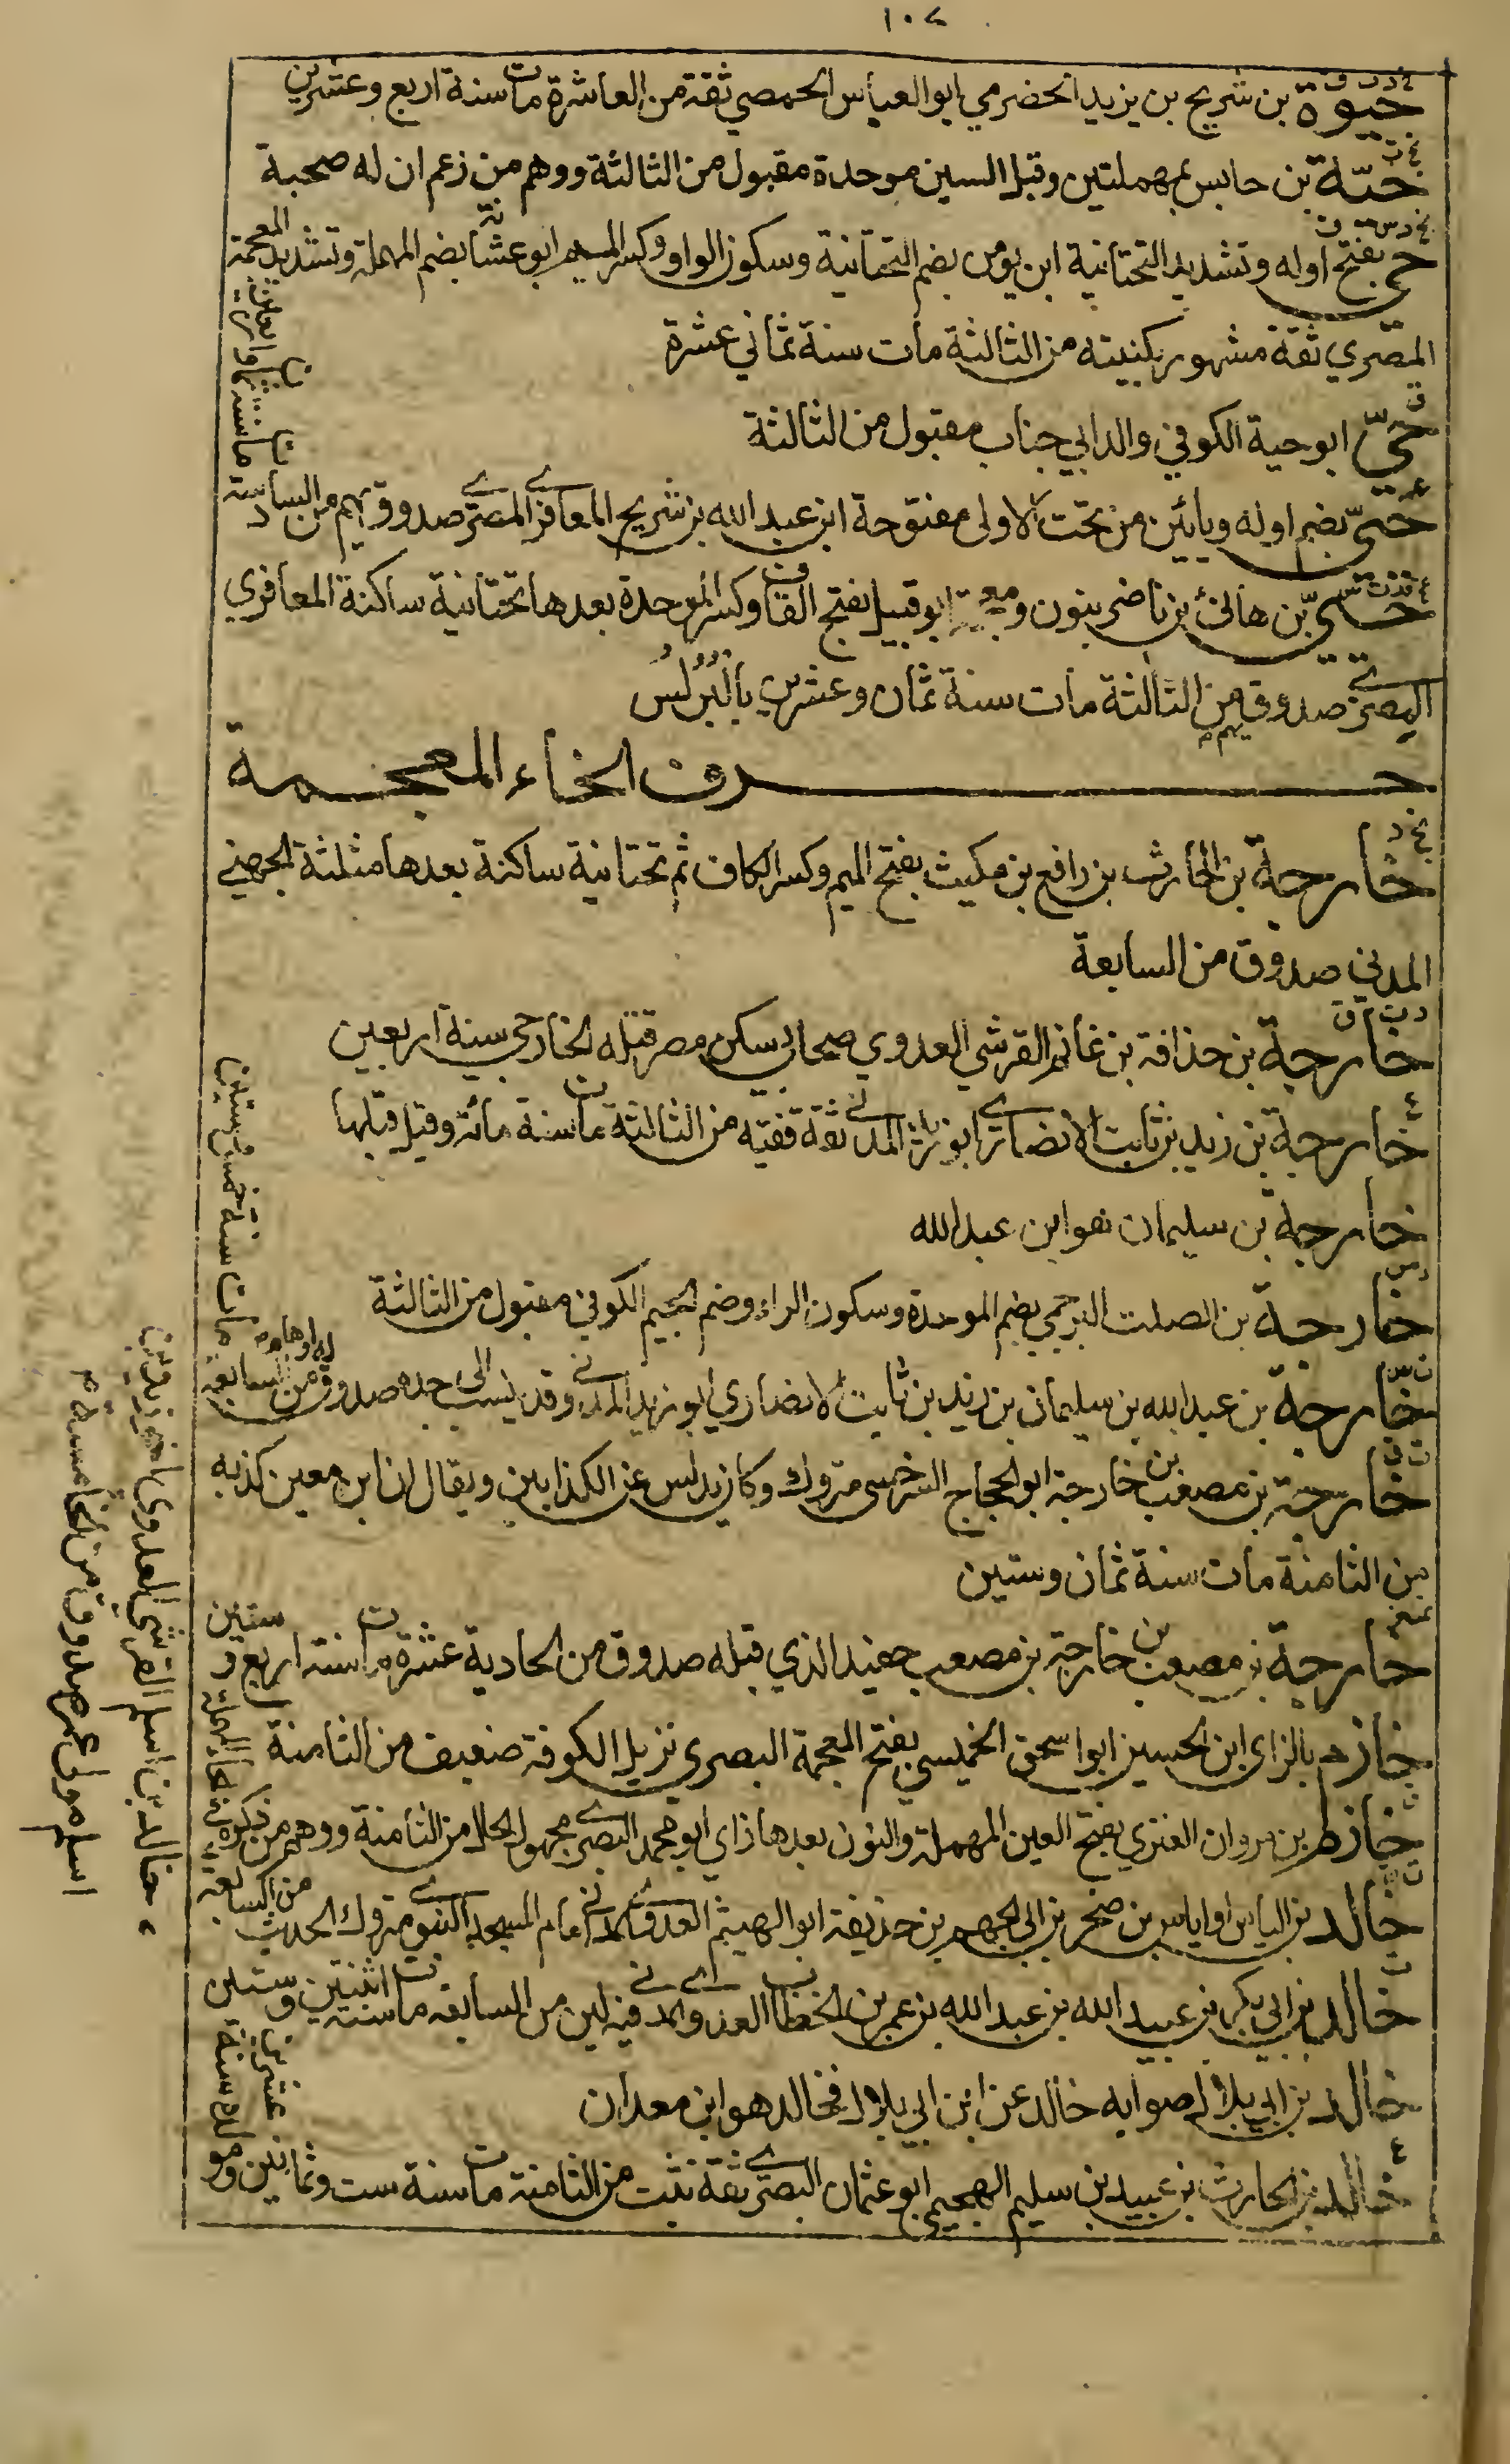 ١٠٧
خ د ت ق
حيوة بن شريح بن يزيد الحضرمي ابو العباس الحمصي ثقة من العاشرة مات سنة اربع وعشرين
حيّة بن حابس بمهملتين وقبل السين موحدة مقبول من الثالثة ووهم من زعم ان له صحبة
حي بفتح اوله وتشديد التحتانية ابن يؤمن بضم التحتانية وسكون الواو وكسر الميم ابو عشانة بضم المهملة وتشديد المعجمة
المصري ثقة مشهور بكنيته من الثالثة مات سنة ثماني عشرة
ق
حيّ ابو حية الكوفي والد ابي جناب مقبول من الثالثة
حييّ بضم اوله ويائين من تحت الاولى مفتوحة ابن عبد الله بن شريح المعافري المصري صدوق يهم من السادسة
حيي بن هانئ بن ناضر بنون ومعجمة ابو قبيل بفتح القاف وكسر الموحدة بعدها تحتانية ساكنة المعافري
البصري صدوق يهم من الثالثة مات سنة ثمان وعشرين بالبُرُلُس
حرف الخاء المعجمة
خارجة بن الحارث بن رافع بن مكيث بفتح الميم وكسر الكاف ثم تحتانية ساكنة بعدها مثلثة الجهني
المدني صدوق من السابعة
د ت ق
خارجة بن حذافة بن غانم القرشي العدوي صحابي سكن مصر قتله الخارجي سنة اربعين
ع
خارجة بن زيد بن ثابت الانصاري ابو زيد المدني ثقة فقيه من الثالثة مات سنة مائة وقيل قبلها
خارجة بن سليمان هو ابن عبد الله
خارجة بن الصلت البرجمي بضم الموحدة وسكون الراء وضم الجيم الكوفي مقبول من الثالثة
ت س
خارجة بن عبد الله بن سليمان بن زيد بن ثابت الانصاري ابو زيد المدني وقد ينسب الى جده صدوق له اوهام من السابعة
مات سنة خمس وستين
ت ق
خارجة بن مصعب بن خارجة ابو الحجاج السرخسي متروك وكان يدلس عن الكذابين ويقال ان ابن معين كذبه
من الثامنة مات سنة ثمان وستين
خارجة بن مصعب بن خارجة بن مصعب حفيد الذي قبله صدوق من الحادية عشرة مات سنة اربع وستين
خازم بالزاي ابن الحسين ابو اسحق الخميسي بفتح المعجمة البصري نزيل الكوفة ضعيف من الثامنة
خازم بن مروان العنزي بفتح العين المهملة والنون بعدها زاي ابو محمد البصري مجهول الحال من الثامنة ووهم من ذكره في الحاء المهملة
ت ق
خالد بن الياس او اياس بن صخر بن ابي الجهم بن حذيفة ابو الهيثم العدوي المدني امام المسجد النبوي متروك الحديث من السابعة
ت
خالد بن ابي بكر بن عبيد الله بن عبد الله بن عمر بن الخطاب العدوي المدني فيه لين من السابعة مات سنة اثنتين وستين
خالد بن ابي بلال صوابه خالد عن ابن ابي بلال فخالد هو ابن معدان
ع
خالد بن الحارث بن عبيد بن سليم الهجيمي ابو عثمان البصري ثقة ثبت من الثامنة مات سنة ست وثمانين ومو
لده سنة عشرين
اسلم مولى عمر صدوق من الخامسة م